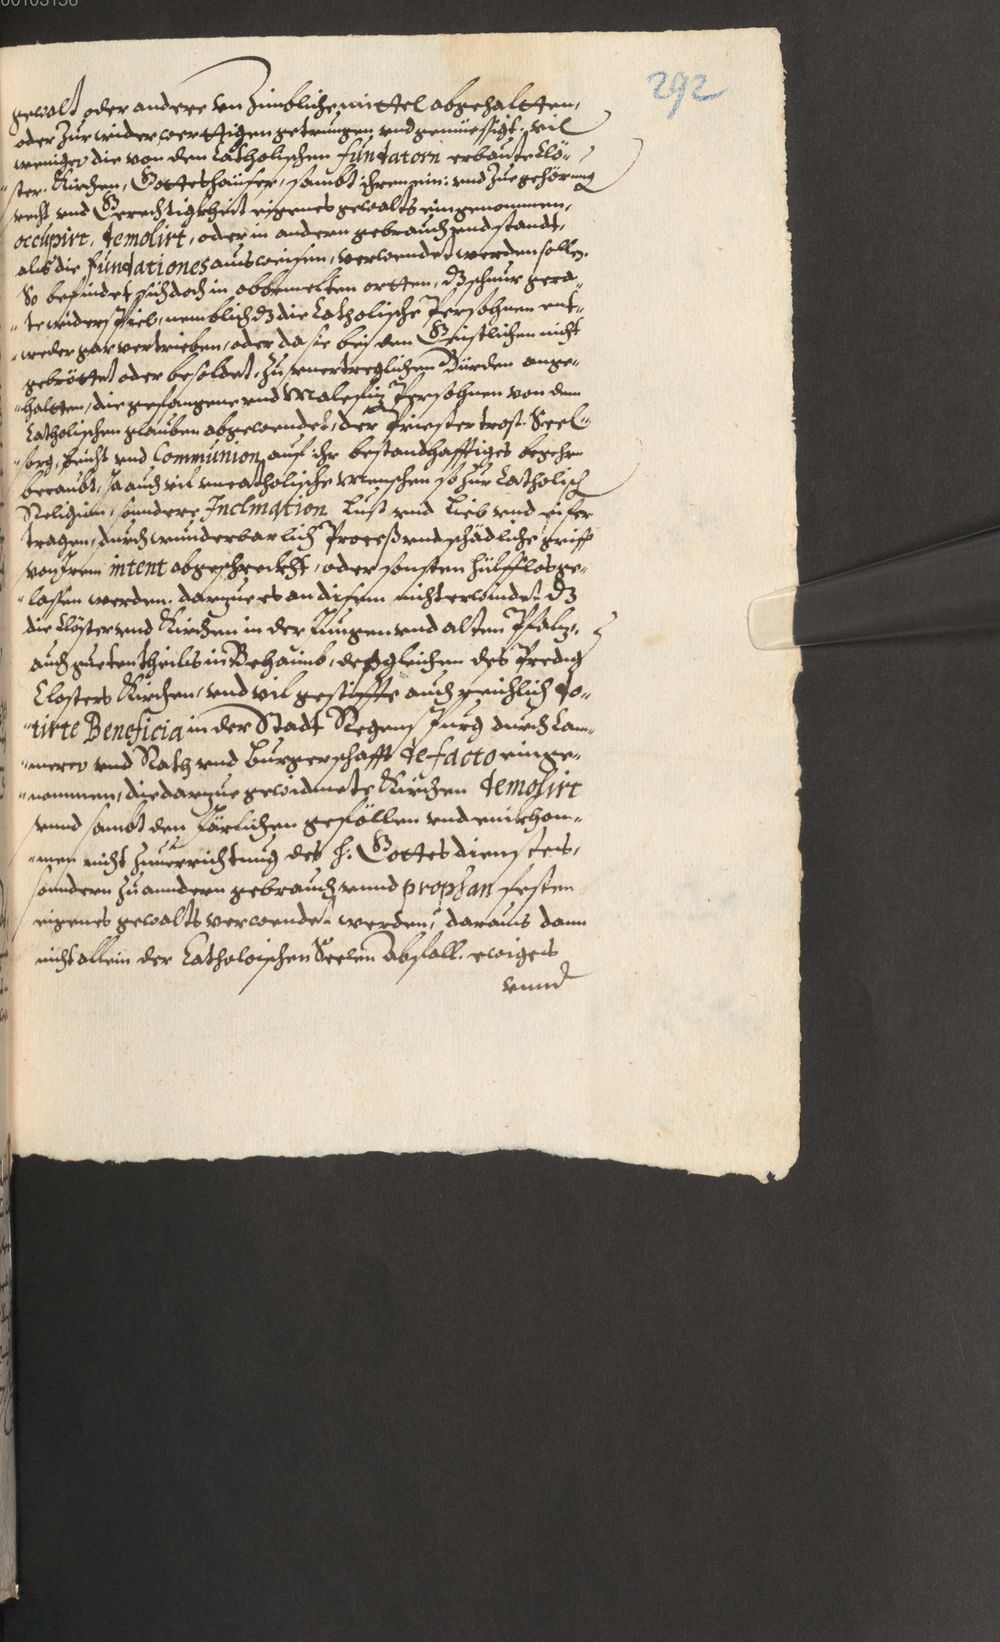 00103156
292
gewalt oder andere vnzimbliche mittel abgehaltten,
oder zur widerwerttigen getrungen vnd genüessigt, vil
weniger die von den Catholischen fundatorn erbaute Clö-
ster, Kirchen, Gottesheüser, sambt ihrem ein: vnd Zuegehörung
recht vnd Gerechtigkheit eigenes gewalts eingenommen,
occupirt, demolirt, oder in andern gebrauch vnd standt,
als die fundationes ausweisen, verwendet werden sollen.
So befindet sich doch in obbemelten ortten, dz schnur gera-
te widerspiel, nemblich dz die Catholische Persohnen ent-
weder gar vertrieben, oder da sie bei den Geistlichen nicht
gebröttet oder besoldet, zu vnertreglichen Bürden ange-
halten, die gefangene vnd Malefiz Persohnen von dem
Catholischen glauben abgewendet, der Priester trost, Seel-
sorg, beicht vnd Communion auf ihr bestandhafftiges begehrn
beraubt, ja auch vil vncatholische Menschen so zur Catholisch
Religion, sondere Inclination Lust vnd Lieb vnd eifer
tragen, durch wunderbarlich Proceß vnd schädliche griff
von Irem intent abgeschreckht, oder sonsten hülfflos ge-
lassen werden. darzue es an disem nicht erwindet dz
die Clöster vnd Kirchen in der Jungen vnd alten Pfaltz,
auch gueten theils in Behaimb, deßgleichen des Predig
Closters Kirchen, vnd vil gestiffte auch reichlich do-
tirte Beneficia in der Stadt Regenspurg durch Cam-
merer vnd Rath vnd Burgerschafft de facto einge-
nommen, die darzue gewidmete Kirchen demolirt
vnnd sambt den Järlichen gefällen vnd einkhom-
men nicht zu verrichtung des h. Gottesdienstes,
sondern zu anndern gebrauch vnnd prophan festen
eigenes gewalts verwendet werden, daraus dann
nicht allein der Catholischen Seelen Abfall, ewiges
vnnd